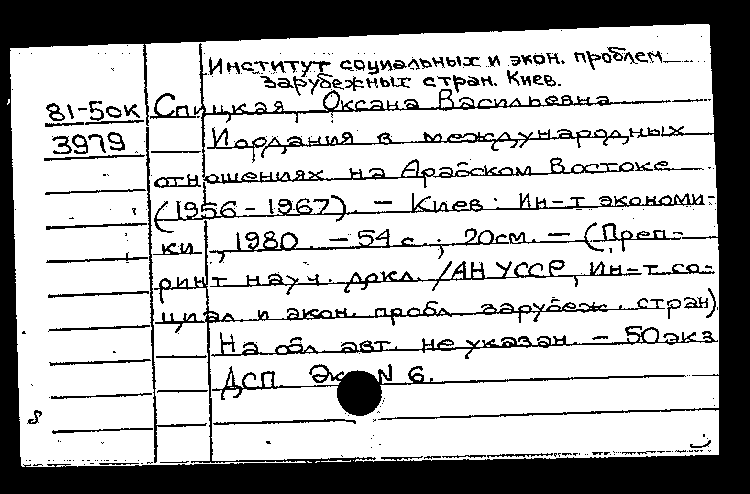 Институт социальных и экон. проблем
зарубежных стран. Киев.
81-5ок Спицкая, Оксана Васильевна
3979 Иордания в международных
отношениях на Арабском Востоке
(1956-1967). - Киев: Ин-т экономи-
ки, 1980. - 54 с.; 20см. - (Преп-
ринт науч. докл. /АН УССР, Ин-т со-
циал. и экон. пробл. зарубеж. стран)
На обл. авт. не указан. - 50экз
ДСП. Эк. N 6.
8